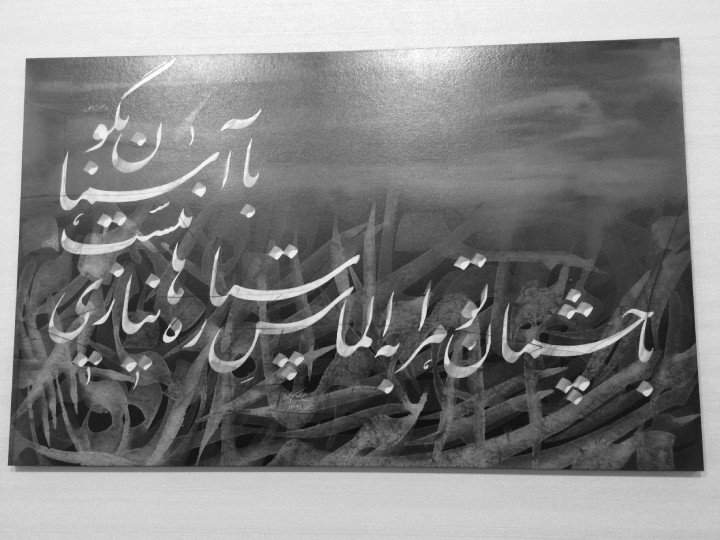 با چشمان تو مرا به الماس ستاره ها نیازی نیست
با آسمان بگو